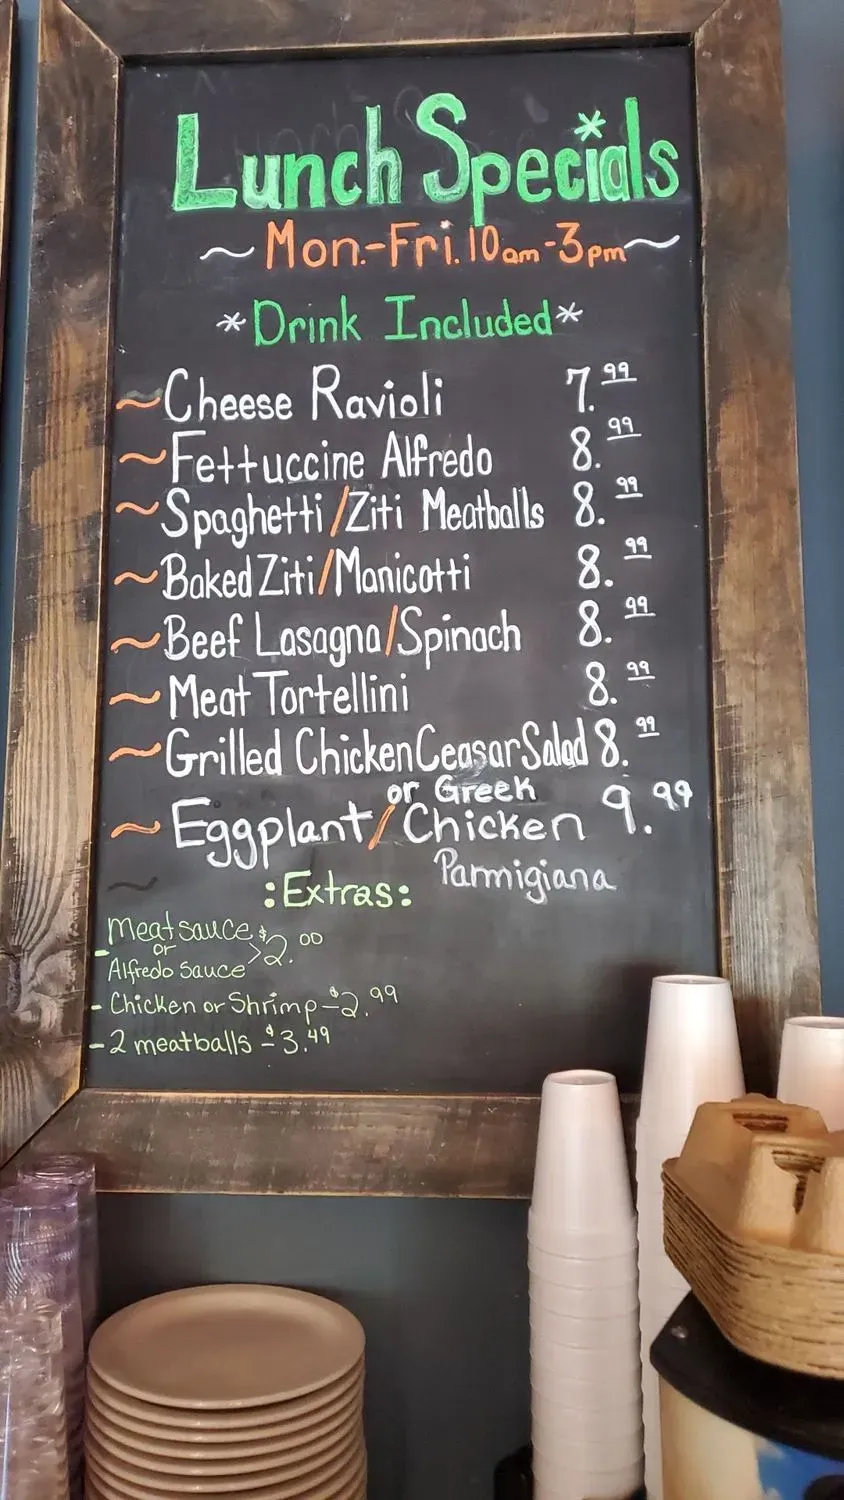 Lunch Specials
~Mon.-Fri. 10am-3pm~
*Drink Included*
~Cheese Ravioli 7.99
~Fettuccine Alfredo 8.99
~Spaghetti/Ziti Meatballs 8.99
~Baked Ziti/Manicotti 8.99
~Beef Lasagna/Spinach 8.99
~Meat Tortellini 8.99
~Grilled Chicken Ceasar Salad 8.99
or Greek
~Eggplant/Chicken 9.99
Parmigiana
:Extras:
-Meat sauce
or >$2.00
Alfredo sauce
-Chicken or Shrimp-$2.99
-2 meatballs-$3.49